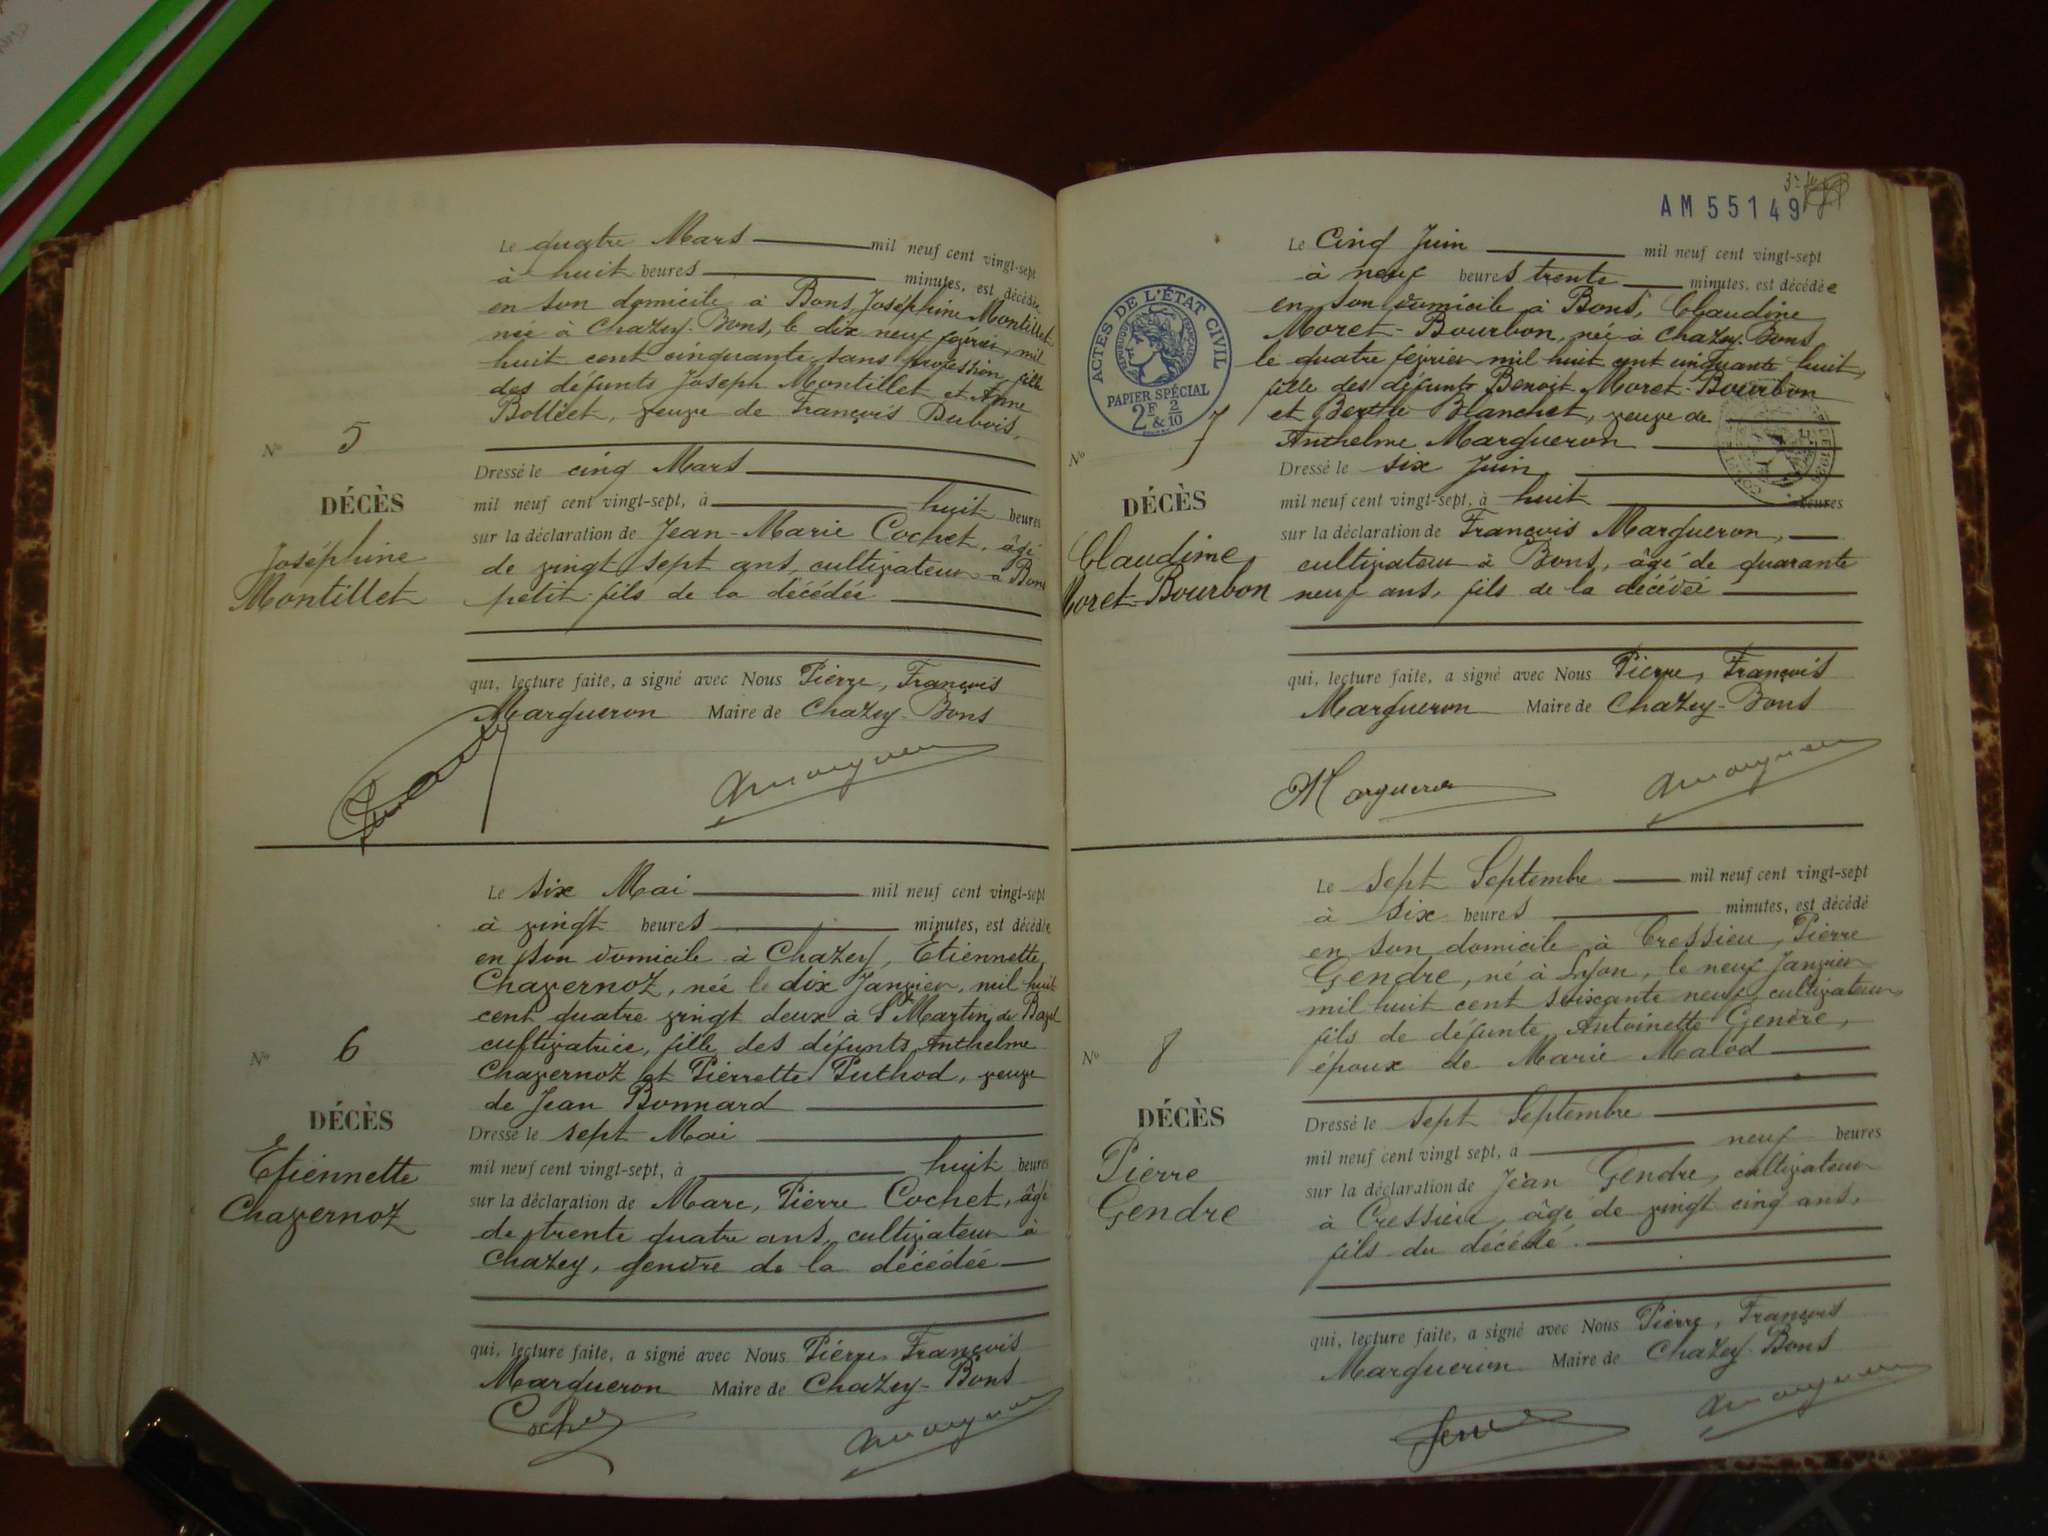 Le quatre Mars mil neuf cent vingt-sept
à huit heures minutes, est décédée
en son domicile à Bons, Joséphine Montillet
née à Chazey-Bons, le dix neuf février, mil
huit cent cinquante, sans profession, fille
des défunts Joseph Montillet et Anne
Bolléet, veuve de François Dubois,
N° 5
Dressé le cinq Mars
DÉCÈS
mil neuf cent vingt-sept, à huit heures
Joséphine
Montillet
sur la déclaration de Jean-Marie Cochet, âgé
de vingt sept ans, cultivateur à Bons
petit-fils de la décédée
qui, lecture faite, a signé avec Nous Pierre, François
Margueron Maire de Chazey-Bons
Le six Mai mil neuf cent vingt-sept
à vingt heures minutes, est décédée
en son domicile à Chazey, Etiennette
Chavernoz, née le dix Janvier, mil huit
cent quatre vingt deux à St Martin de Bavel
cultivatrice, fille des défunts Anthelme
N° 6
Chavernoz et Pierrette Puthod, veuve
de Jean Bonnard
DÉCÈS
Dressé le sept Mai
Etiennette
Chavernoz
mil neuf cent vingt-sept, à huit heures
sur la déclaration de Marc, Pierre Cochet, âgé
de trente quatre ans, cultivateur à
Chazey, gendre de la décédée
qui, lecture faite, a signé avec Nous Pierre, François
Margueron Maire de Chazey-Bons
Cochet
AM 55149
Le Cinq Juin mil neuf cent vingt-sept
à neuf heures trente minutes, est décédée
en son domicile à Bons, Claudine
Moret-Bourbon, née à Chazey-Bons
le quatre février mil huit cent cinquante huit,
fille des défunts Benoit Moret-Bourbon
et Berthe Blanchet, veuve de
Anthelme Margueron
ACTES DE L'ÉTAT CIVIL
PAPIER SPÉCIAL
2F & 2/10
N° 7
Dressé le six Juin
DÉCÈS
mil neuf cent vingt-sept, à huit heures
Claudine
Moret-Bourbon
sur la déclaration de François Margueron,
cultivateur à Bons, âgé de quarante
neuf ans, fils de la décédée
qui, lecture faite, a signé avec Nous Pierre, François
Margueron Maire de Chazey-Bons
Margueron
Le sept Septembre mil neuf cent vingt-sept
à six heures minutes, est décédé
en son domicile à Cressieu, Pierre
Gendre, né à Lyon, le neuf Janvier
mil huit cent soixante neuf, cultivateur,
fils de défunte Antoinette Gendre,
époux de Marie Malod
N° 8
Dressé le sept Septembre
DÉCÈS
mil neuf cent vingt sept, à neuf heures
Pierre
Gendre
sur la déclaration de Jean Gendre, cultivateur
à Cressieu, âgé de vingt cinq ans,
fils du décédé.
qui, lecture faite, a signé avec Nous Pierre, François
Margueron Maire de Chazey-Bons